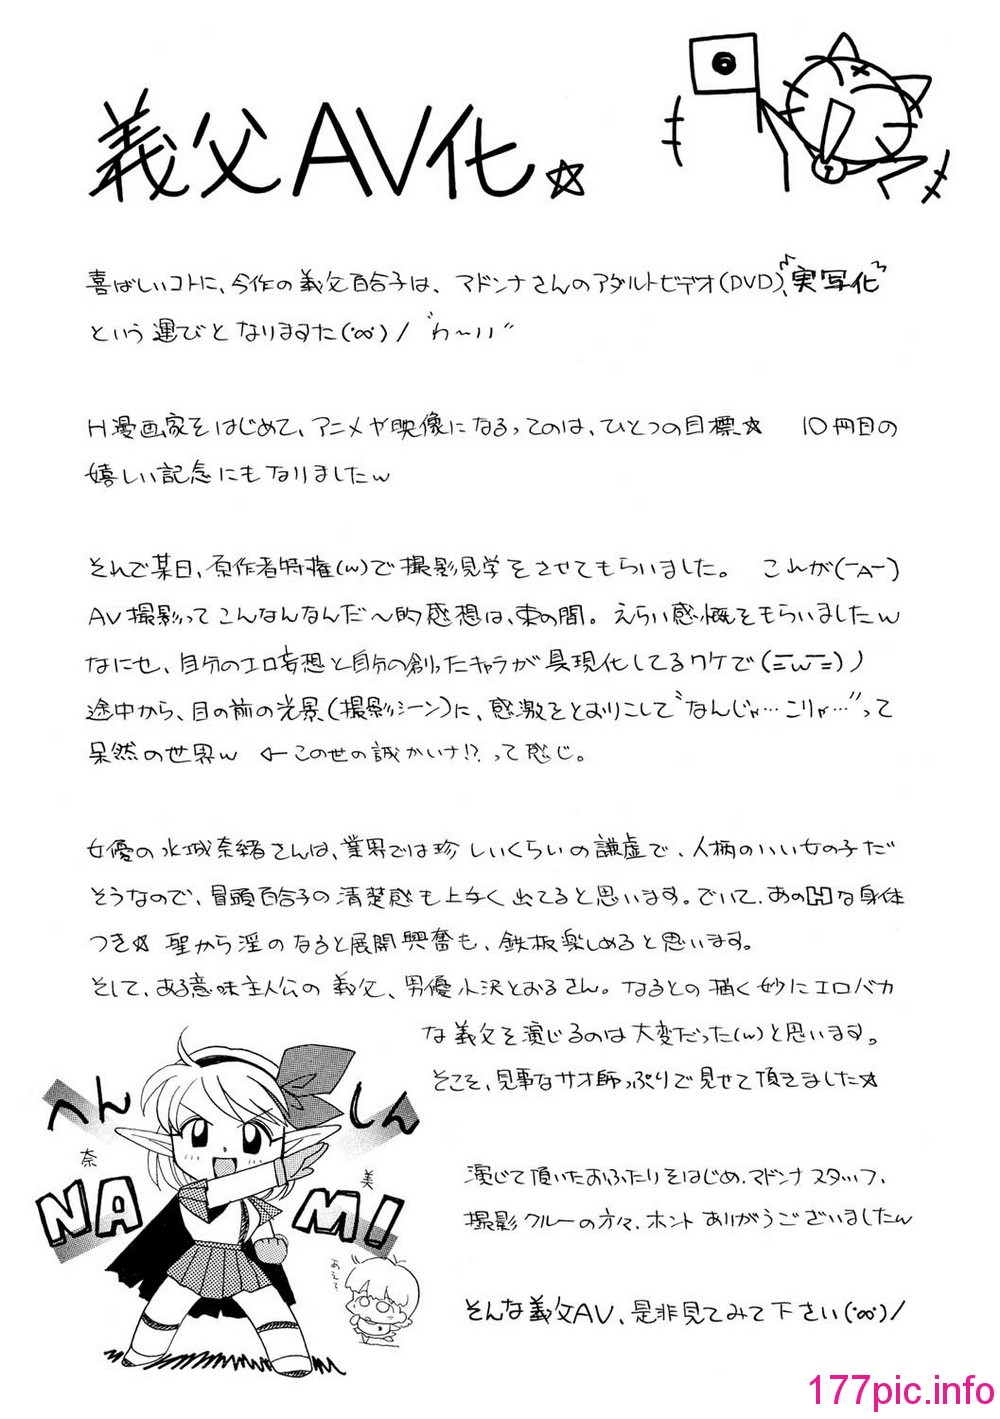 義父AV化☆
喜ばしいコトに、今作の義父百合子は、マドンナさんのアダルトビデオ(DVD)、実写化
という運びとなりますた(°∞°)/ "わ〜い"
H漫画家をはじめて、アニメや映像になるってのは、ひとつの目標☆ 10冊目の
嬉しい記念にもなりましたw
それで某日、原作者特権(w)で撮影見学をさせてもらいました。 これが(ーAー)
AV撮影ってこんなんなんだ〜的感想は、束の間。えらい感慨をもらいましたw
なにせ、自分のエロ妄想と自分の創ったキャラが具現化してるワケで(ニwニ)ノ
途中から、目の前の光景(撮影シーン)に、感激をとおりこして"なんじゃ…こりゃ…"って
呆然の世界w ←この世の誠かいナ!?って感じ。
女優の水城奈緒さんは、業界では珍しいくらいの謙虚で、人柄のいい女の子だ
そうなので、冒頭百合子の清楚感も上手く出てると思います。でいて、あのHな身体
つき☆ 聖から淫のなると展開興奮も、鉄板楽しめると思います。
そして、ある意味主人公の義父、男優小沢とおるさん。なるとの描く妙にエロバカ
な義父を演じるのは大変だった(w)と思います。
そこそ、見事なサオ師っぷりで見せて頂きました☆
演じて頂いたおふたりをはじめ、マドンナスタッフ、
撮影クルーの方々、ホントありがうございましたw
そんな義父AV、是非見てみて下さい(°∞°)/
へんしん
奈
美
NAMI
177pic.info